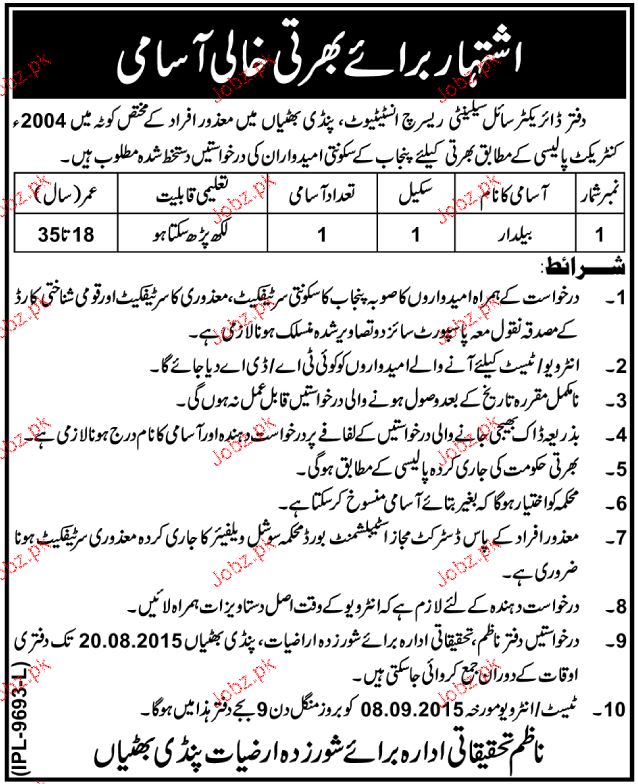 اشتہار برائے بھرتی خالی آسامی
دفتر ڈائریکٹر سائل سیلینٹی ریسرچ انسٹیٹیوٹ، پنڈی بھٹیاں میں معذور افراد کے مختص کوٹہ میں 2004ء
کنٹریکٹ پالیسی کے مطابق بھرتی کیلئے پنجاب کے سکونتی امیدواران کی درخواستیں دستخط شدہ مطلوب ہیں۔
نمبر شمار آسامی کا نام سکیل تعداد آسامی تعلیمی قابلیت عمر (سال)
1 بیلدار 1 1 لکھ پڑھ سکتا ہو 18 تا 35
شرائط:
1۔ درخواست کے ہمراہ امیدواروں کا صوبہ پنجاب کا سکونتی سرٹیفکیٹ، معذوری کا سرٹیفکیٹ اور قومی شناختی کارڈ
کے مصدقہ نقول معہ پاسپورٹ سائز دو تصاویر شدہ منسلک ہونا لازمی ہے۔
2۔ انٹرویو/ ٹیسٹ کیلئے آنے والے امیدواروں کو کوئی ٹی اے/ ڈی اے دیا جائے گا۔
3۔ نامکمل مقررہ تاریخ کے بعد وصول ہونے والی درخواستیں قابل عمل نہ ہوں گی۔
4۔ بذریعہ ڈاک بھیجی جانے والی درخواستیں کے لفافے پر درخواست دہندہ اور آسامی کا نام درج ہونا لازمی ہے۔
5۔ بھرتی حکومت کی جاری کردہ پالیسی کے مطابق ہوگی۔
6۔ محکمہ کو اختیار ہوگا کہ بغیر بتائے آسامی منسوخ کر سکتا ہے۔
7۔ معذور افراد کے پاس ڈسٹرکٹ مجاز اسٹیبلشمنٹ بورڈ محکمہ سوشل ویلفیئر کا جاری کردہ معذوری سرٹیفکیٹ ہونا
ضروری ہے۔
8۔ درخواست دہندہ کے لئے لازم ہے کہ انٹرویو کے وقت اصل دستاویزات ہمراہ لائیں۔
9۔ درخواستیں دفتر ناظم، تحقیقاتی ادارہ برائے شور زدہ اراضیات، پنڈی بھٹیاں 20.08.2015 تک دفتری
اوقات کے دوران جمع کروائی جا سکتی ہیں۔
10۔ ٹیسٹ/ انٹرویو مورخہ 08.09.2015 کو بروز منگل دن 9 بجے دفتر ہذا میں ہوگا۔
ناظم تحقیقاتی ادارہ برائے شور زدہ ارضیات پنڈی بھٹیاں
(IPL-9693-L)
Jobz.pk